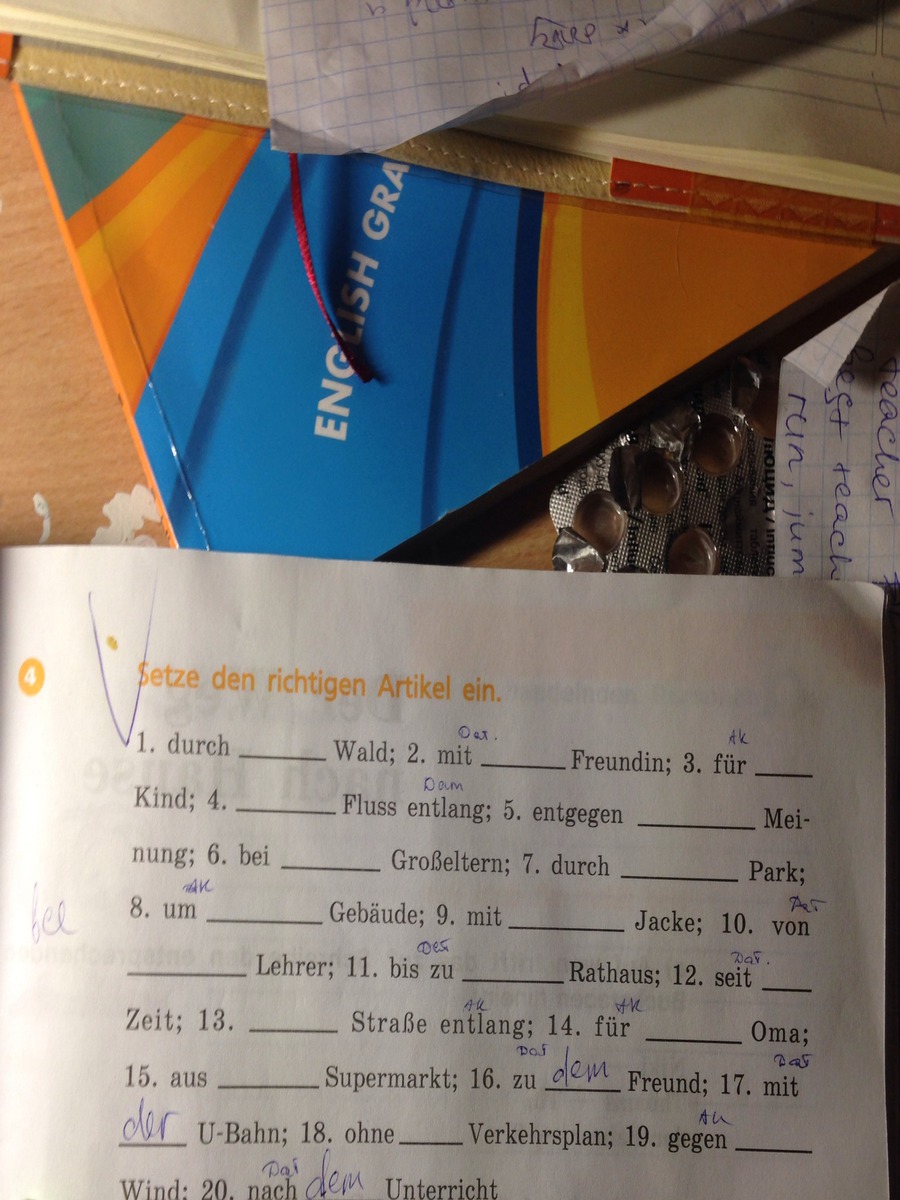 ENGLISH GRA
teacher
best teach
run, jum
4 Setze den richtigen Artikel ein.
Dat. Ak
1. durch ______ Wald; 2. mit ______ Freundin; 3. für ____
Kind; 4. ______ Fluss entlang; 5. entgegen ______ Mei-
nung; 6. bei ______ Großeltern; 7. durch ______ Park;
Ak Dat
8. um ______ Gebäude; 9. mit ______ Jacke; 10. von
Dat Dat.
______ Lehrer; 11. bis zu ______ Rathaus; 12. seit ____
Ak Ak
Zeit; 13. ______ Straße entlang; 14. für ______ Oma;
Dat Dat
15. aus ______ Supermarkt; 16. zu dem Freund; 17. mit
Ak
der U-Bahn; 18. ohne ____ Verkehrsplan; 19. gegen ____
Dat
Wind; 20. nach dem Unterricht